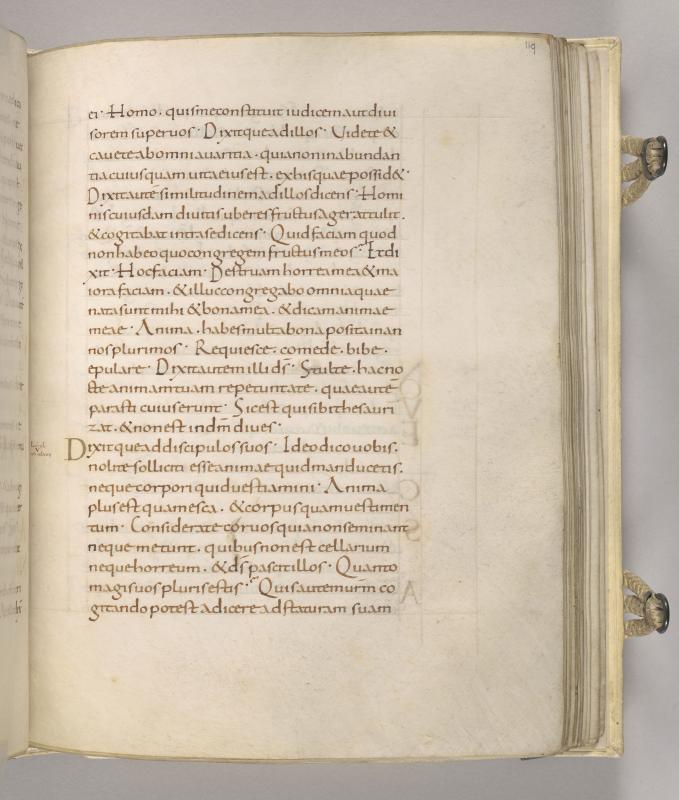 119
ei · Homo · quis me constituit iudicem aut divi
sorem super vos · Dixitque ad illos · Videte &
cavete ab omni avaritia · quia non in abundan
tia cuiusquam vita eius est · ex his quae possid& ·
Dixit autē similitudinem ad illos dicens · Homi
nis cuiusdam divitis uberes fructus ager attulit ·
& cogitabat intra se dicens · Quid faciam quod
non habeo quo congregem fructus meos · Et di
xit · Hoc faciam · Destruam horrea mea & ma
iora faciam · & illuc congregabo omnia quae
nata sunt mihi & bona mea · & dicam animae
meae · Anima · habes multa bona posita in an
nos plurimos · Requiesce · comede · bibe ·
epulare · Dixit autem illi d̄s · Stulte · hac no
cte animam tuam repetunt a te · quae autē
parasti cuius erunt · Sic est qui sibi thesauri
zat · & non est in dm̄ dives ·
Dixitque ad discipulos suos · Ideo dico vobis ·
nolite solliciti esse animae quid manducetis ·
neque corpori quid vestiamini · Anima
plus est quam esca · & corpus quam vestimen
tum · Considerate corvos quia non seminant
neque metunt · quibus non est cellarium
neque horreum · & d̄s pascit illos · Quanto
magis vos pluris estis · Quis autem vr̄m co
gitando potest adicere ad staturam suam